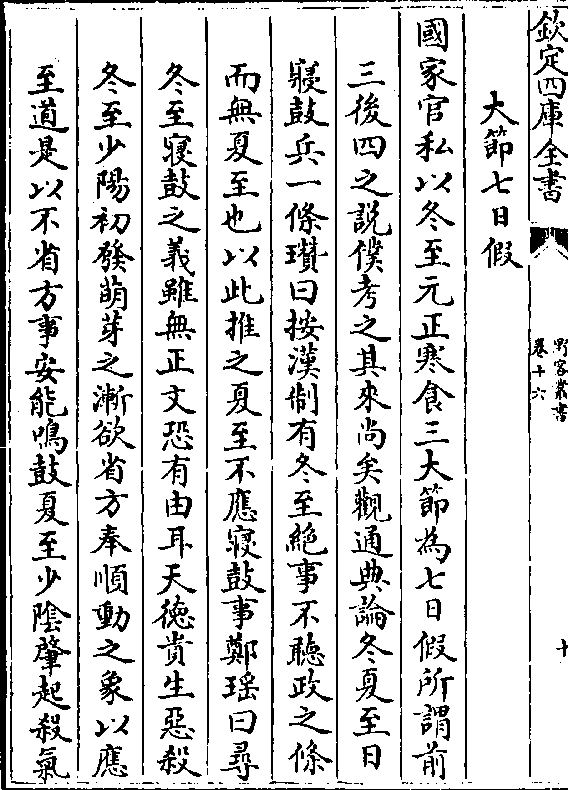 欽定四庫全書
野客叢書
卷十六
十
大節七日假
國家官私以冬至元正寒食三大節為七日假所謂前
三後四之說僕考之其來尚矣觀通典論冬夏至日
寢鼓兵一條瓚曰按漢制有冬至絶事不聽政之條
而無夏至也以此推之夏至不應寢鼓事鄭瑤曰尋
冬至寢鼓之義雖無正文恐有由耳天徳貴生惡殺
冬至少陽初發萌芽之漸欲省方奉順動之象以應
至道是以不省方事安能鳴鼓夏至少陰肇起殺氣